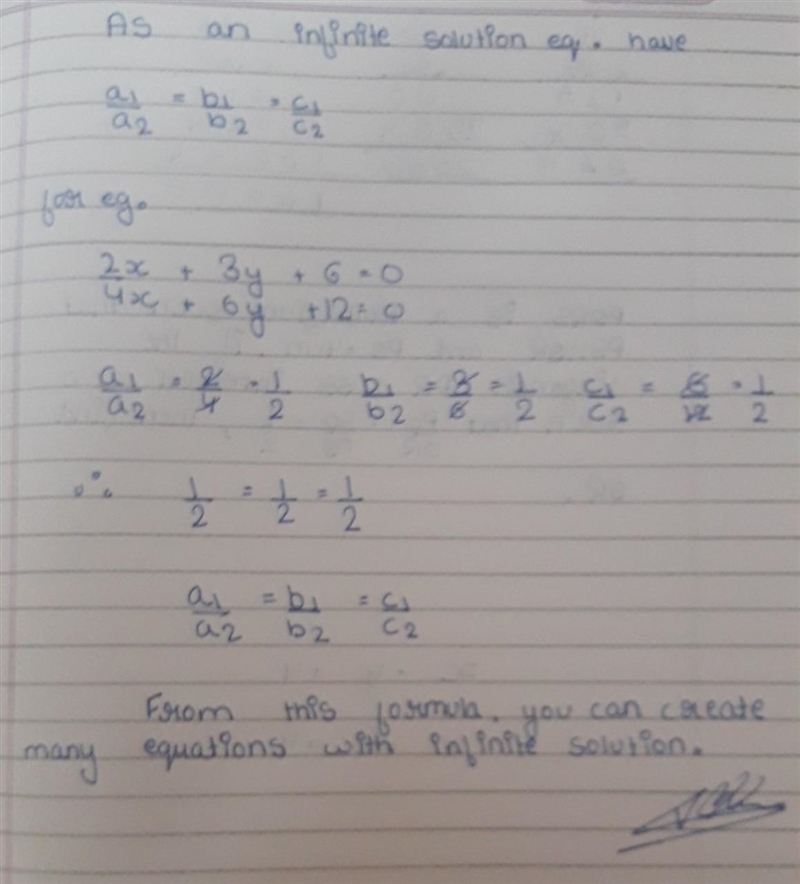 As an infinite solution eq. have
a1/a2 = b1/b2 = c1/c2
for eg.
2x + 3y + 6 = 0
4x + 6y + 12 = 0
a1/a2 = 2/4 = 1/2 b1/b2 = 3/6 = 1/2 c1/c2 = 6/12 = 1/2
∴ 1/2 = 1/2 = 1/2
a1/a2 = b1/b2 = c1/c2
From this formula, you can create
many equations with infinite solution.